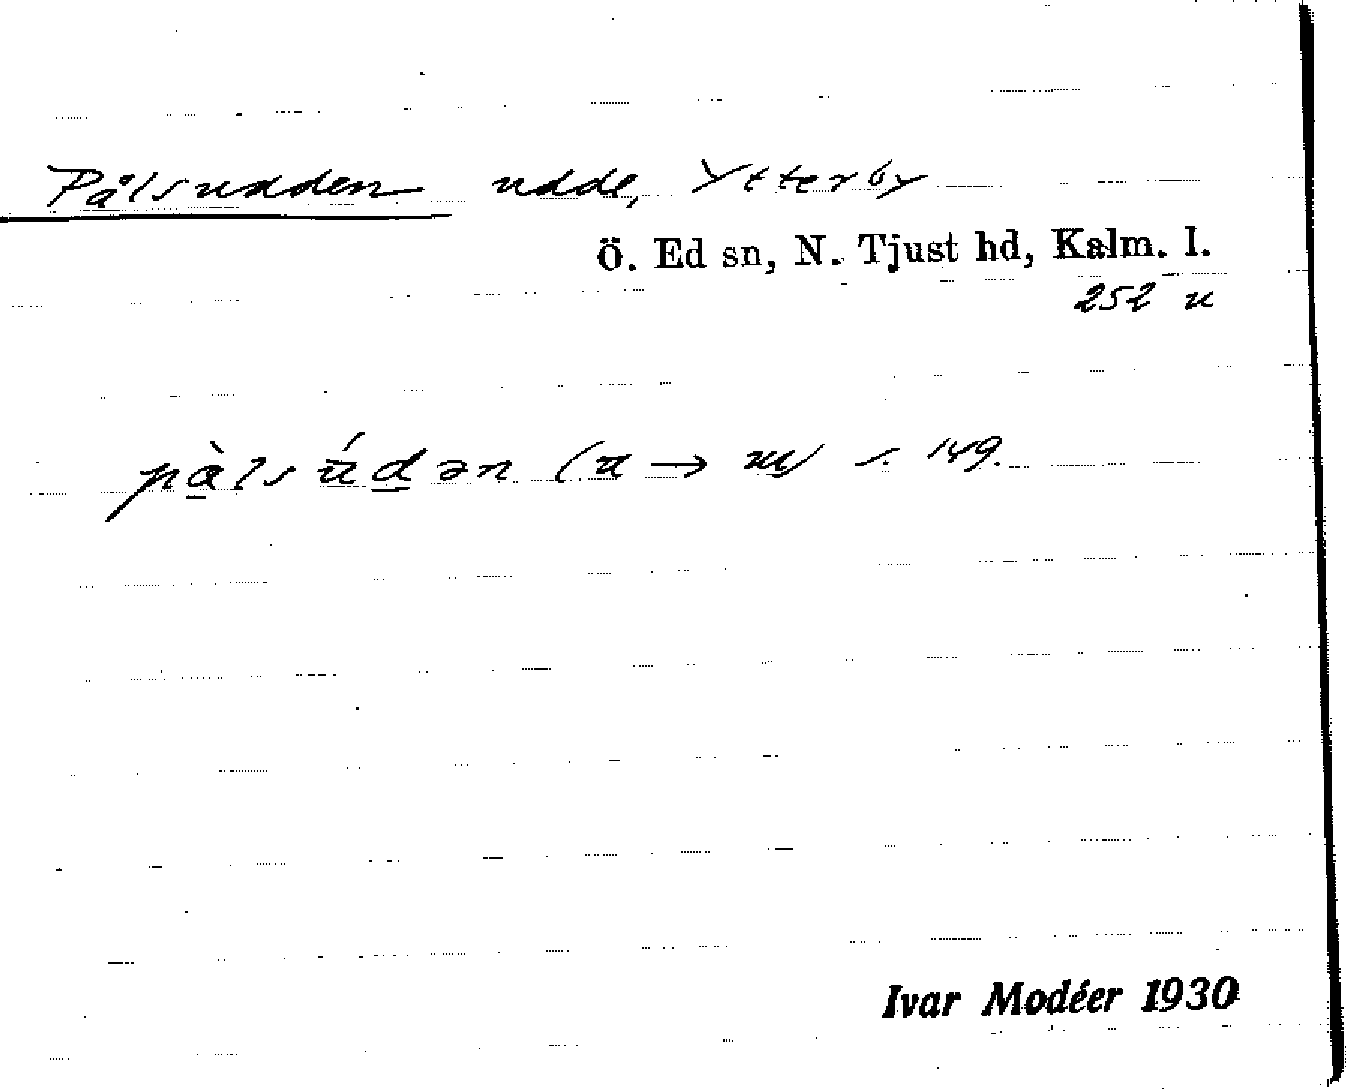 Pålsudden udde, Ytterby
Ö. Ed sn, N. Tjust hd, Kalm. l.
252 u
pàlsúdən (u → ɯ) s. 149.
Ivar Modéer 1930